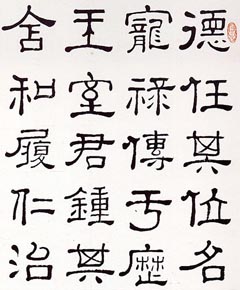 德任其位名
寵祿傳于歷
王室君鍾其
含和履仁治